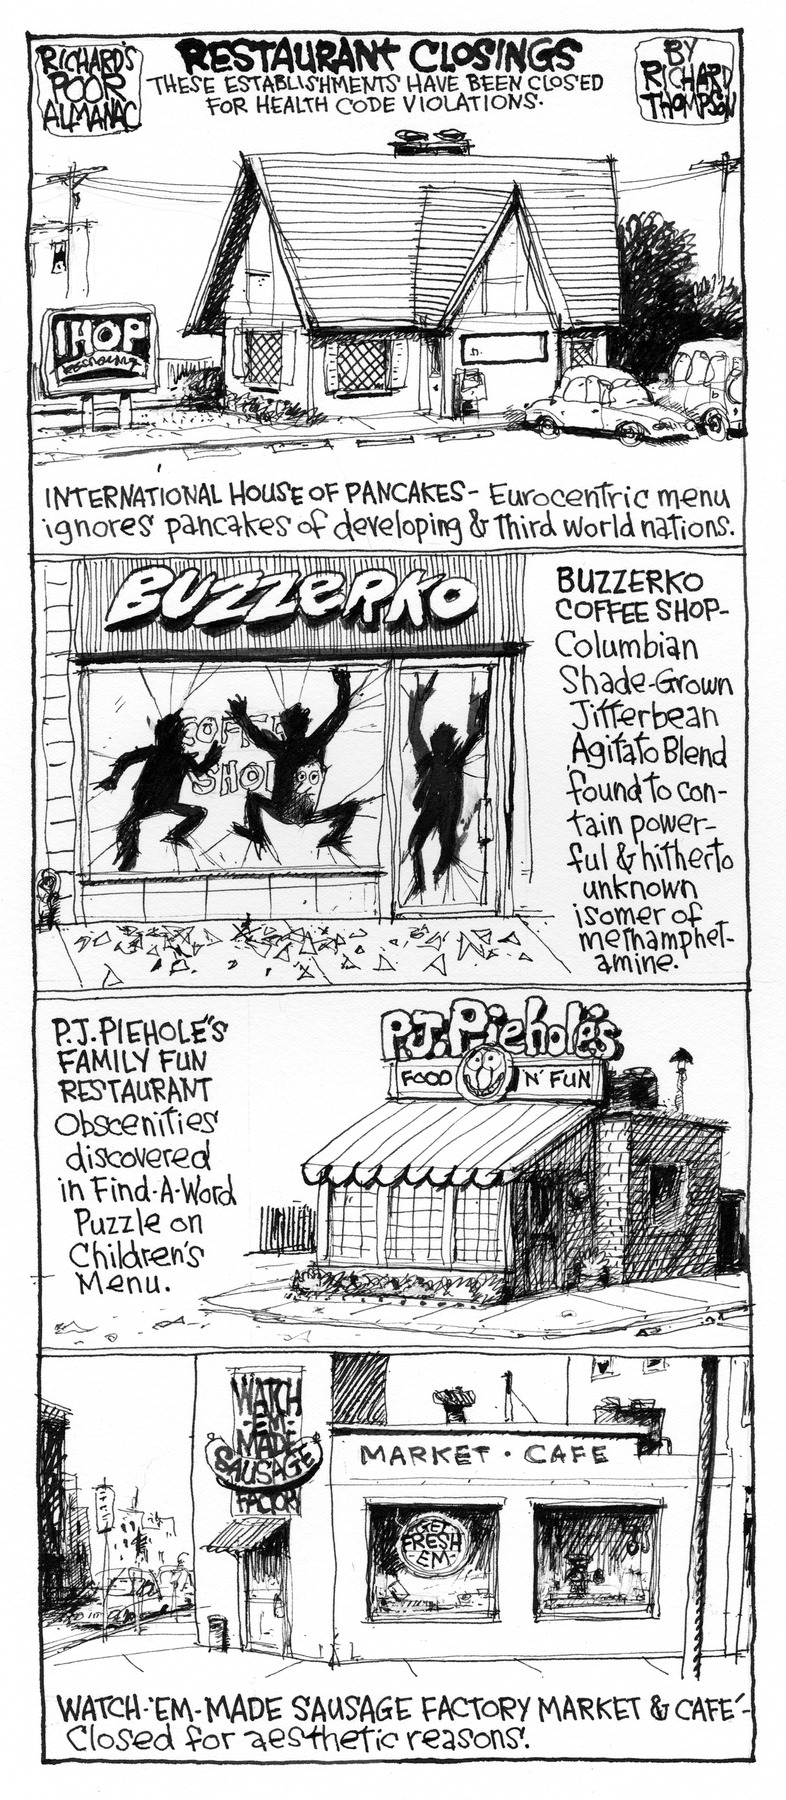 RICHARD'S
POOR
ALMANAC
RESTAURANT CLOSINGS
THESE ESTABLISHMENTS HAVE BEEN CLOSED
FOR HEALTH CODE VIOLATIONS.
BY
RICHARD
THOMPSON
IHOP
restaurant
INTERNATIONAL HOUSE OF PANCAKES- Eurocentric menu
ignores pancakes of developing & third world nations.
BUZZERKO
COFFEE
SHOP
BUZZERKO
COFFEE SHOP-
Columbian
Shade-Grown
Jitterbean
Agitato Blend
found to con-
tain power-
ful & hitherto
unknown
isomer of
methamphet-
amine.
P.J. PIEHOLE'S
FAMILY FUN
RESTAURANT
Obscenities
discovered
in Find-A-Word
Puzzle on
Children's
Menu.
P.J. Piehole's
FOOD 'N' FUN
WATCH
-'EM-
MADE
SAUSAGE
FACTORY
MARKET · CAFE
GET
FRESH
-EM-
WATCH-'EM-MADE SAUSAGE FACTORY MARKET & CAFÉ-
Closed for aesthetic reasons.